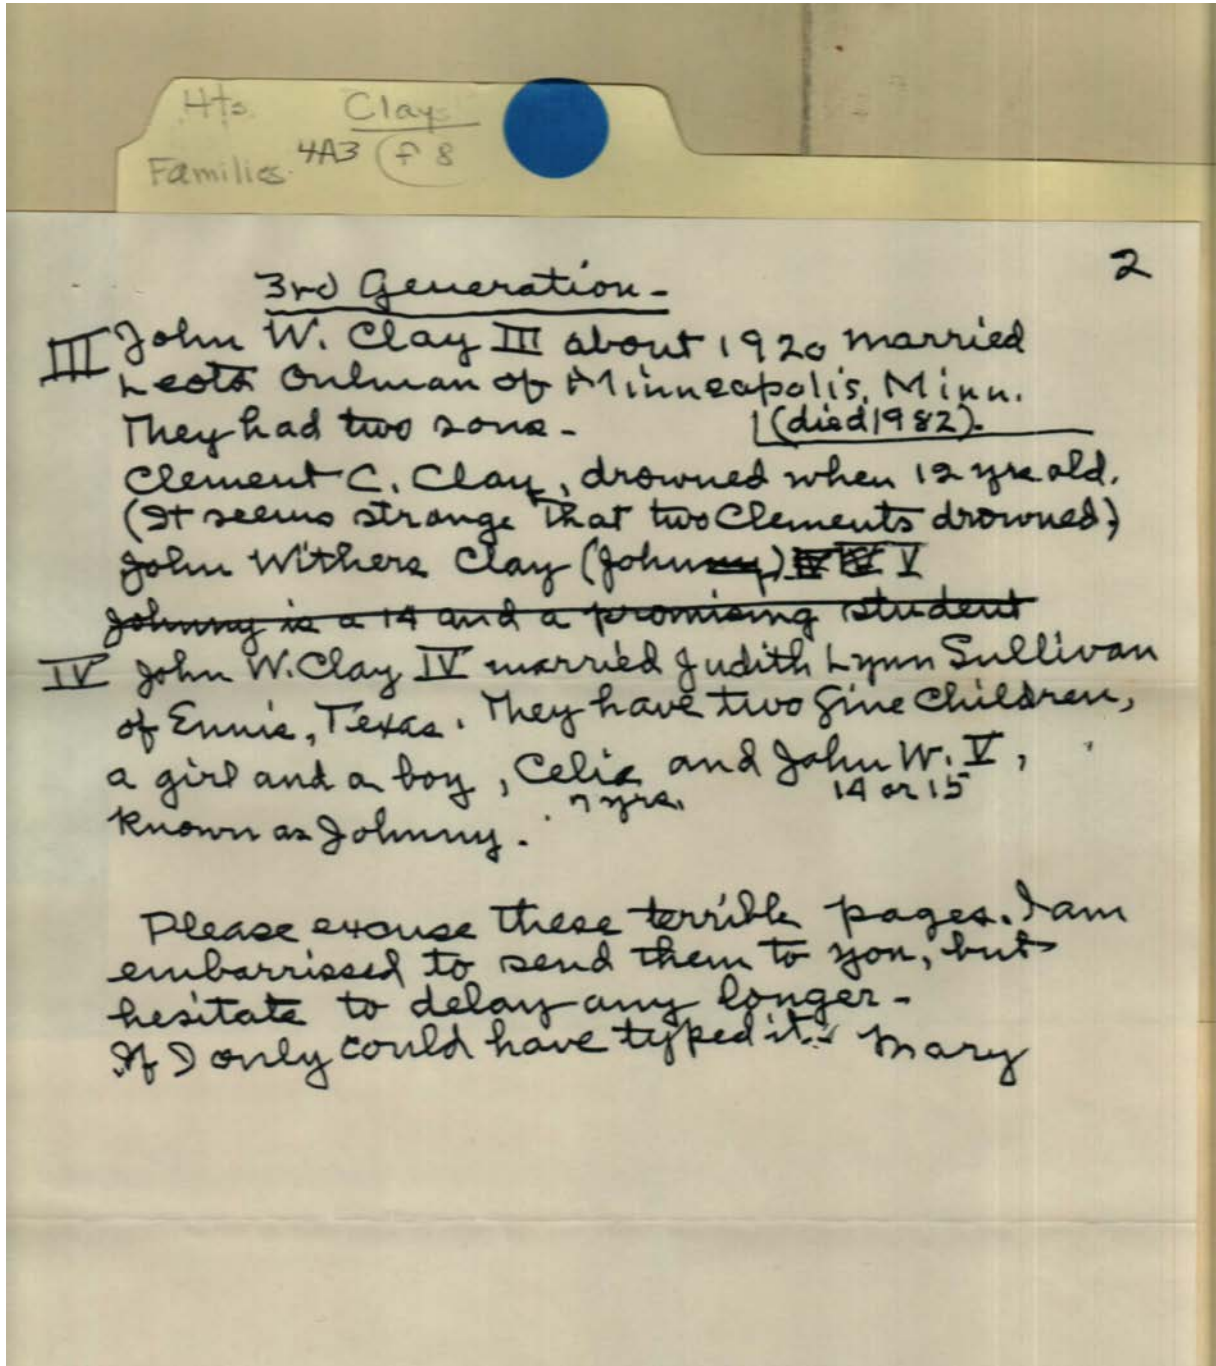 Hts. Clays
Families. 4A3 f 8
2
3rd Generation-
III John W. Clay III about 1920 married
Leota Oulman of Minneapolis, Minn.
They had two sons- (died 1982).
Clement C. Clay, drowned when 12 yrs old.
(It seems strange that two Clements drowned)
John Withers Clay (Johnny) IV IV V
Johnny is a 14 and a promising student
IV John W. Clay IV married Judith Lynn Sullivan
of Ennis, Texas. They have two fine Children,
a girl and a boy, Celia and John W. V,
7 yrs. 14 or 15
Known as Johnny.
Please excuse these terrible pages. I am
embarrissed to send them to you, but
hesitate to delay any longer-
If I only could have typed it. Mary